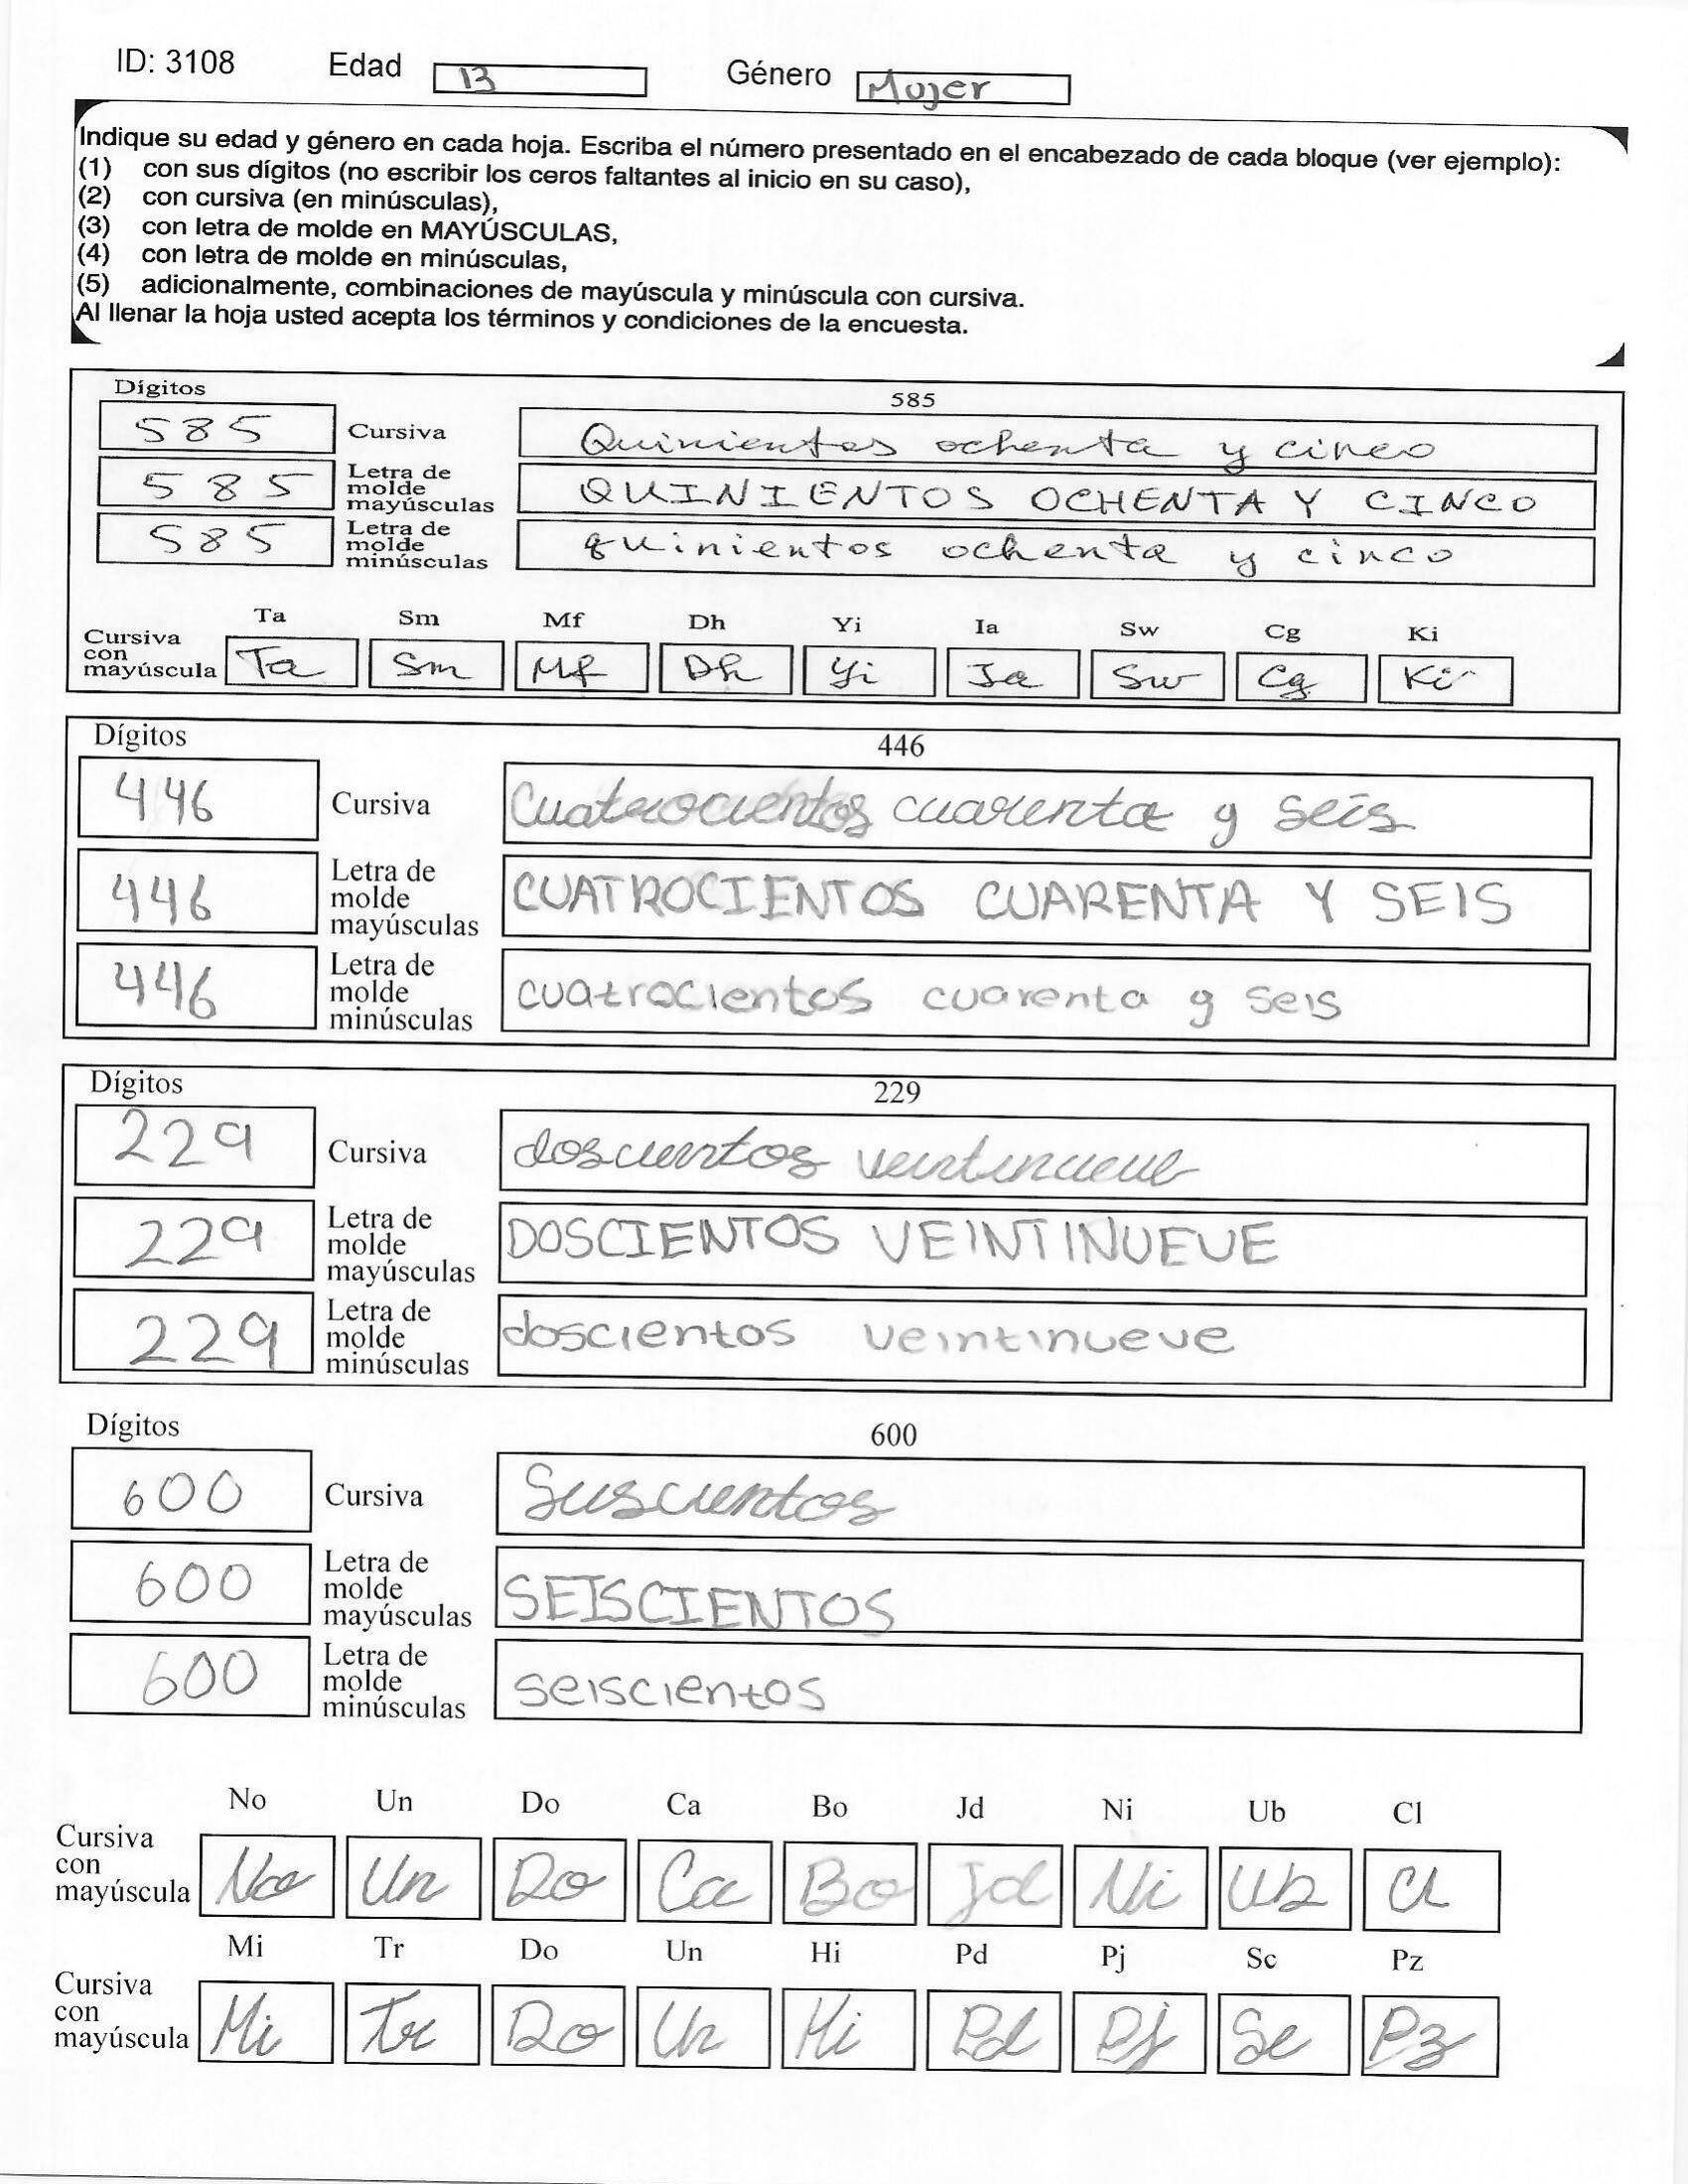 ID: 3108 Edad 13 Género Mujer
Indique su edad y género en cada hoja. Escriba el número presentado en el encabezado de cada bloque (ver ejemplo):
(1) con sus dígitos (no escribir los ceros faltantes al inicio en su caso),
(2) con cursiva (en minúsculas),
(3) con letra de molde en MAYÚSCULAS,
(4) con letra de molde en minúsculas,
(5) adicionalmente, combinaciones de mayúscula y minúscula con cursiva.
Al llenar la hoja usted acepta los términos y condiciones de la encuesta.
Dígitos 585
585 Cursiva Quinientos ochenta y cinco
585 Letra de molde mayúsculas QUINIENTOS OCHENTA Y CINCO
585 Letra de molde minúsculas quinientos ochenta y cinco
Ta Sm Mf Dh Yi Ia Sw Cg Ki
Cursiva con mayúscula Ta Sm Mf Dh Yi Ia Sw Cg Ki
Dígitos 446
446 Cursiva Cuatrocientos cuarenta y seis
446 Letra de molde mayúsculas CUATROCIENTOS CUARENTA Y SEIS
446 Letra de molde minúsculas cuatrocientos cuarenta y seis
Dígitos 229
229 Cursiva doscientos veintinueve
229 Letra de molde mayúsculas DOSCIENTOS VEINTINUEVE
229 Letra de molde minúsculas doscientos veintinueve
Dígitos 600
600 Cursiva Seiscientos
600 Letra de molde mayúsculas SEISCIENTOS
600 Letra de molde minúsculas seiscientos
No Un Do Ca Bo Jd Ni Ub Cl
Cursiva con mayúscula No Un Do Ca Bo Jd Ni Ub Cl
Mi Tr Do Un Hi Pd Pj Sc Pz
Cursiva con mayúscula Mi Tr Do Un Hi Pd Pj Sc Pz